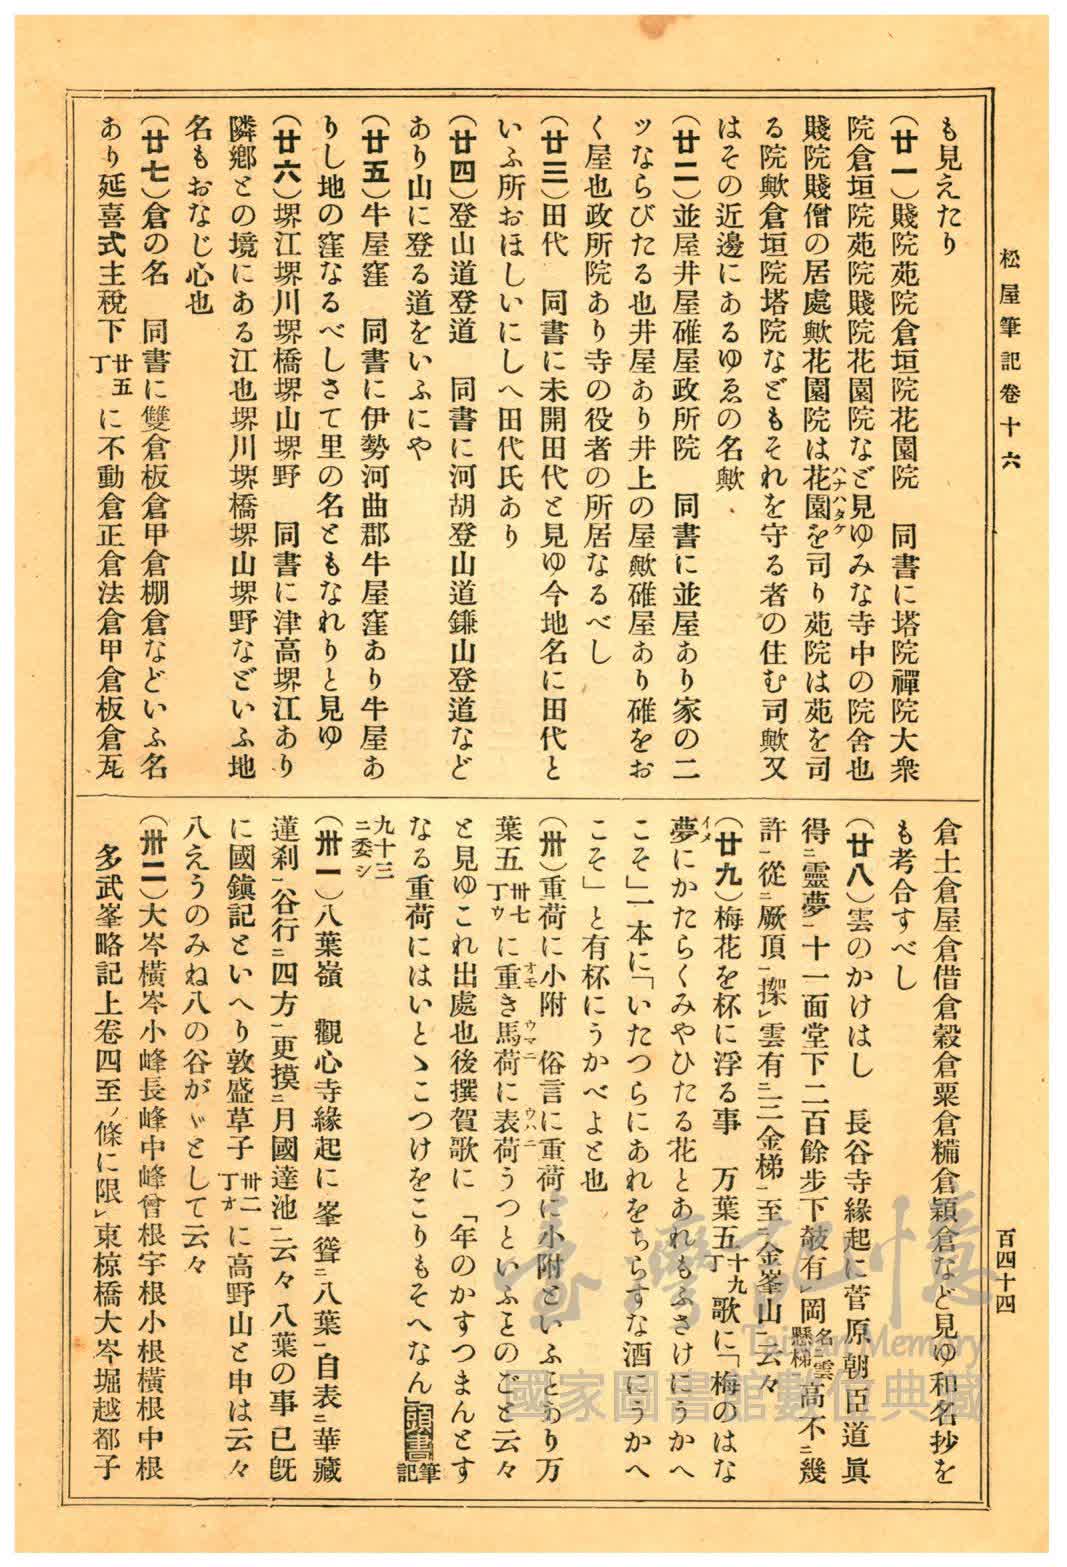 松屋筆記卷十六
百四十四
も見えたり
（廿一）賤院苑院倉垣院花園院　同書に塔院禪院大衆
院倉垣院苑院賤院花園院など見ゆみな寺中の院舍也
賤院賤僧の居處歟花園院は花園ハナハタケを司り苑院は苑を司
る院歟倉垣院塔院などもそれを守る者の住む司歟又
はその近邊にあるゆゑの名歟
（廿二）並屋井屋碓屋政所院　同書に並屋あり家の二
ツならびたる也井屋あり井上の屋歟碓屋あり碓をお
く屋也政所院あり寺の役者の所居なるべし
（廿三）田代　同書に未開田代と見ゆ今地名に田代と
いふ所おほしいにしへ田代氏あり
（廿四）登山道登道　同書に河胡登山道鎌山登道など
あり山に登る道をいふにや
（廿五）牛屋窪　同書に伊勢河曲郡牛屋窪あり牛屋あ
りし地の窪なるべしさて里の名ともなれりと見ゆ
（廿六）堺江堺川堺橋堺山堺野　同書に津高堺江あり
隣鄕との境にある江也堺川堺橋堺山堺野などいふ地
名もおなじ心也
（廿七）倉の名　同書に雙倉板倉甲倉棚倉などいふ名
あり延喜式主稅下廿五丁に不動倉正倉法倉甲倉板倉瓦
倉土倉屋倉借倉穀倉粟倉糒倉穎倉など見ゆ和名抄を
も考合すべし
（廿八）雲のかけはし　長谷寺緣起に菅原朝臣道眞
得ニ靈夢一十一面堂下二百餘步下攲有レ岡名ニ雲懸梯一高不ニ幾
許一從ニ厥頂一攃レ雲有ニ三金梯一至ニ金峯山一云々
（廿九）梅花を杯に浮る事　万葉五十九丁歌に「梅のはな
夢イメにかたらくみやひたる花とあれもふさけにうかへ
こそ」一本に「いたつらにあれをちらすな酒にうかへ
こそ」と有杯にうかべよと也
（卅）重荷に小附　俗言に重荷に小附といふことあり万
葉五卅七丁ウに重オモき馬荷ウマニに表荷ウハニうつといふことのごと云々
と見ゆこれ出處也後撰賀歌に「年のかすつまんとす
なる重荷にはいとゝこつけをこりもそへなん筆記
九十三ニ委シ
（卅一）八葉嶺　觀心寺緣起に峯聳ニ八葉一自表ニ華藏
蓮刹一谷行ニ四方一更摸ニ月國達池一云々八葉の事已旣
に國鎭記といへり敦盛草子卅二丁オに高野山と申は云々
八えうのみね八の谷がゞとして云々
（卅二）大岑橫岑小峰長峰中峰曾根宇根小根橫根中根
多武峯略記上卷四至ノ條に限レ東椋橋大岑堀越都子
臺灣記憶
Taiwan Memory
國家圖書館數位典藏